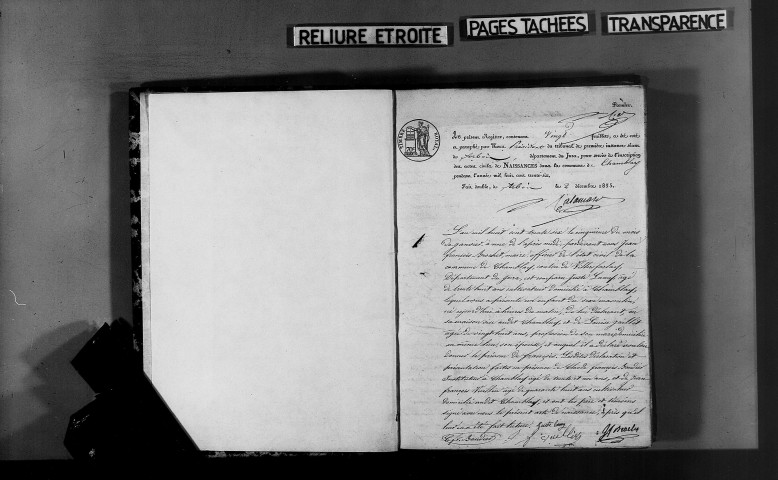 RELIURE ETROITE
PAGES TACHEES
TRANSPARENCE
Première.
Le présent Registre, contenant Vingt feuillets, a été coté
et paraphé par Nous Président du tribunal de première instance séant
département du Jura, pour servir de l'inscription
des actes civils de NAISSANCES dans la commune de Chamblay
pendant l'année mil huit cent trente-six.
Fait double, à le 2 décembre 1835.
L'an mil huit cent trente six le cinquième du mois
de janvier à une de l'après midi pardevant nous Jean
françois Brochet, maire, officier de l'état civil de la
commune de Chamblay, canton de Villersfarlay,
Département du Jura, est comparu Juste Lamy âgé
de trente huit ans cultivateur domicilié à Chamblay,
lequel nous a présenté un enfant du sexe masculin
né aujourd'hui à heures du matin, de lui déclarant, en
sa maison sise audit Chamblay, et de Louise
âgée de vingt huit ans, profession de son mari domiciliée
au même lieu, son épouse; et auquel il a déclaré vouloir
donner le prénom de françois. Lesdites déclaration et
présentation faites en présence de Charle françois
Instituteur à Chamblay âgé de trente et un ans, et de Jean
françois âgé de quarante huit ans cultivateur
domicilié audit Chamblay, et ont les père et témoins
signé avec nous le présent acte de naissance, après qu'il
leur en a été fait lecture.